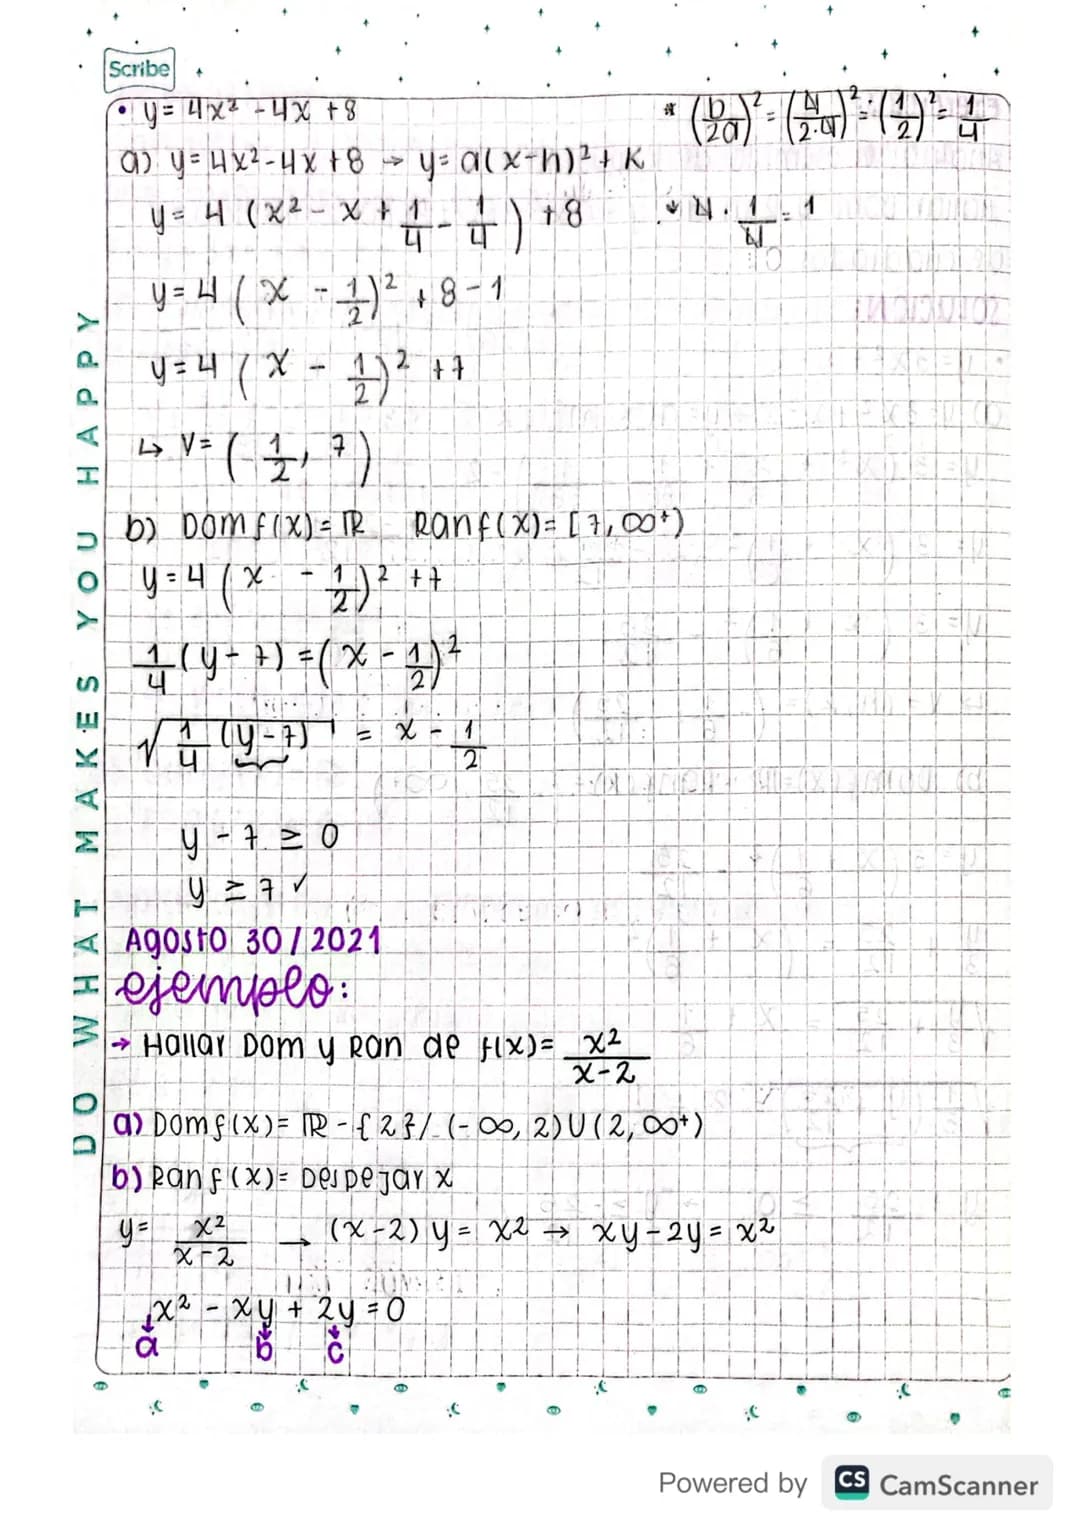 Scribe
• y = 4x² - 4x + 8
* (b/2a)² = (4/2·4)² = (1/2)² = 1/4
a) y = 4x² - 4x + 8 → y = a(x-h)² + K
y = 4 (x² - x + 1/4 - 1/4) + 8
* 4 · 1/4 = 1
y = 4 (x - 1/2)² + 8 - 1
y = 4 (x - 1/2)² + 7
↳ V = (1/2, 7)
b) Dom f(x) = ℝ Ran f(x) = [7, ∞⁺)
y = 4 (x - 1/2)² + 7
1/4 (y - 7) = (x - 1/2)²
√(1/4 (y - 7)) = x - 1/2
y - 7 ≥ 0
y ≥ 7 ✓
Agosto 30 / 2021
ejemplo:
→ Hallar Dom y Ran de f(x) = x²/x-2
a) Dom f(x) = ℝ - {2} / (-∞, 2) U (2, ∞⁺)
b) Ran f(x) = Despejar x
y = x²/x-2 → (x-2) y = x² → xy - 2y = x²
x² - xy + 2y = 0
a b c
DO WHAT MAKES YOU HAPPY
Powered by CS CamScanner